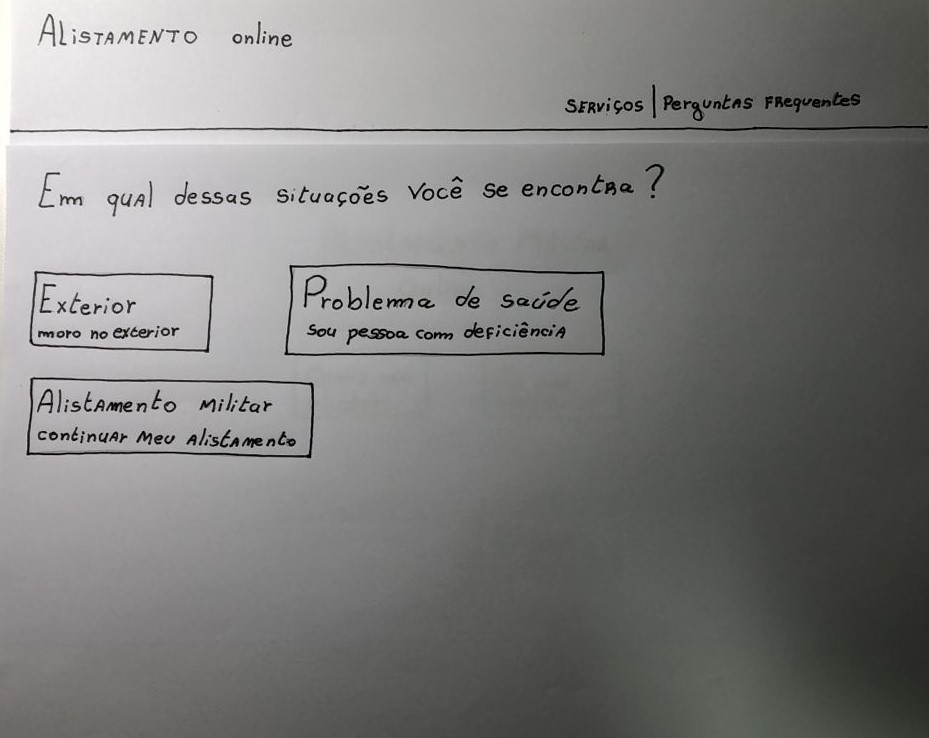 Alistamento online
Serviços | Perguntas Frequentes
Em qual dessas situações você se encontra?
Exterior
moro no exterior
Problema de saúde
sou pessoa com deficiência
Alistamento Militar
continuar meu alistamento